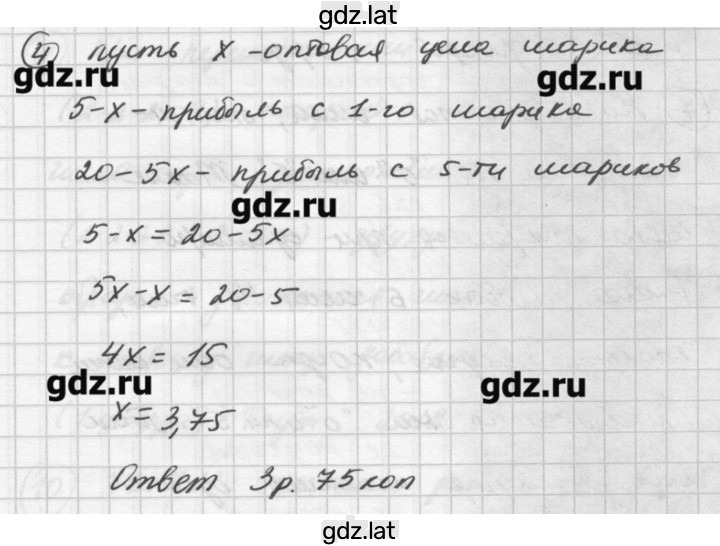 gdz.lat
4 пусть x - оптовая цена шарика
gdz.ru gdz.ru
5-x - прибыль с 1-го шарика
20-5x - прибыль с 5-ти шариков
gdz.ru
5-x = 20-5x
5x-x = 20-5
4x = 15
gdz.ru gdz.ru
x = 3,75
Ответ 3р. 75 коп
gdz.lat